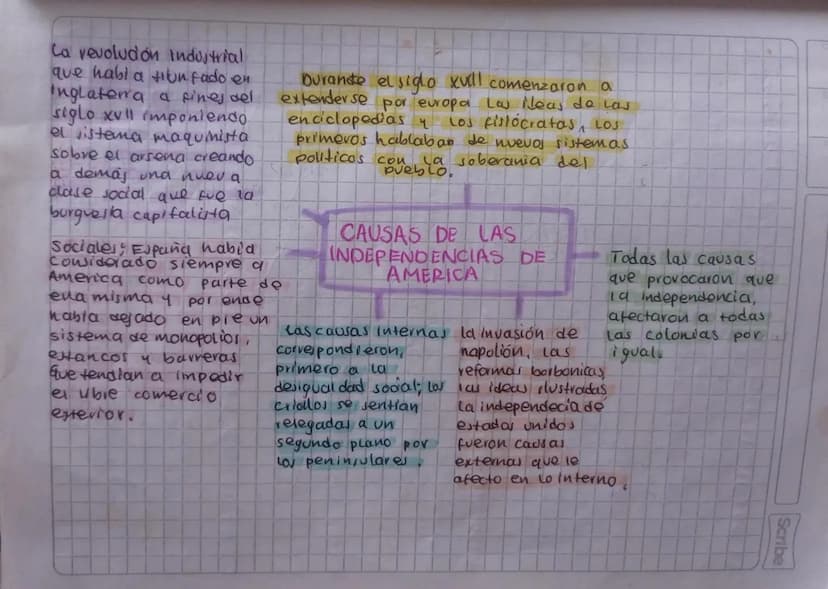 La revolución industrial
que habia triunfado en
Inglaterra a fines del
siglo xvll imponiendo
el sistema maquinista
sobre el arsena creando
a demás una nueva
clase social que fue la
burguesia capitalista
Durante el siglo xvlll comenzaron a
extenderse por europa las ideas de las
enciclopedias y los fisiócratas, los
primeros hablaban de nuevos sistemas
politicos con la soberania del
pueblo.
CAUSAS DE LAS
INDEPENDENCIAS DE
AMERICA
Sociales; España habia
considerado siempre a
America como parte de
ella misma y por ende
habia dejado en pie un
sistema de monopolios,
estancos y barreras
que tendian a impedir
el libre comercio
exterior.
Las causas internas
correspondieron,
primero a la
desigualdad social; los
criollos se sentian
relegadas a un
segundo plano por
los peninsulares.
la invasión de
napolión, las
reformas borbonicas
las ideas ilustradas
la independecia de
estados unidos
fueron causas
externas que le
afecto en lo interno.
Todas las causas
que provocaron que
la independencia,
afectaron a todas
las colonias por
igual.
Scribe